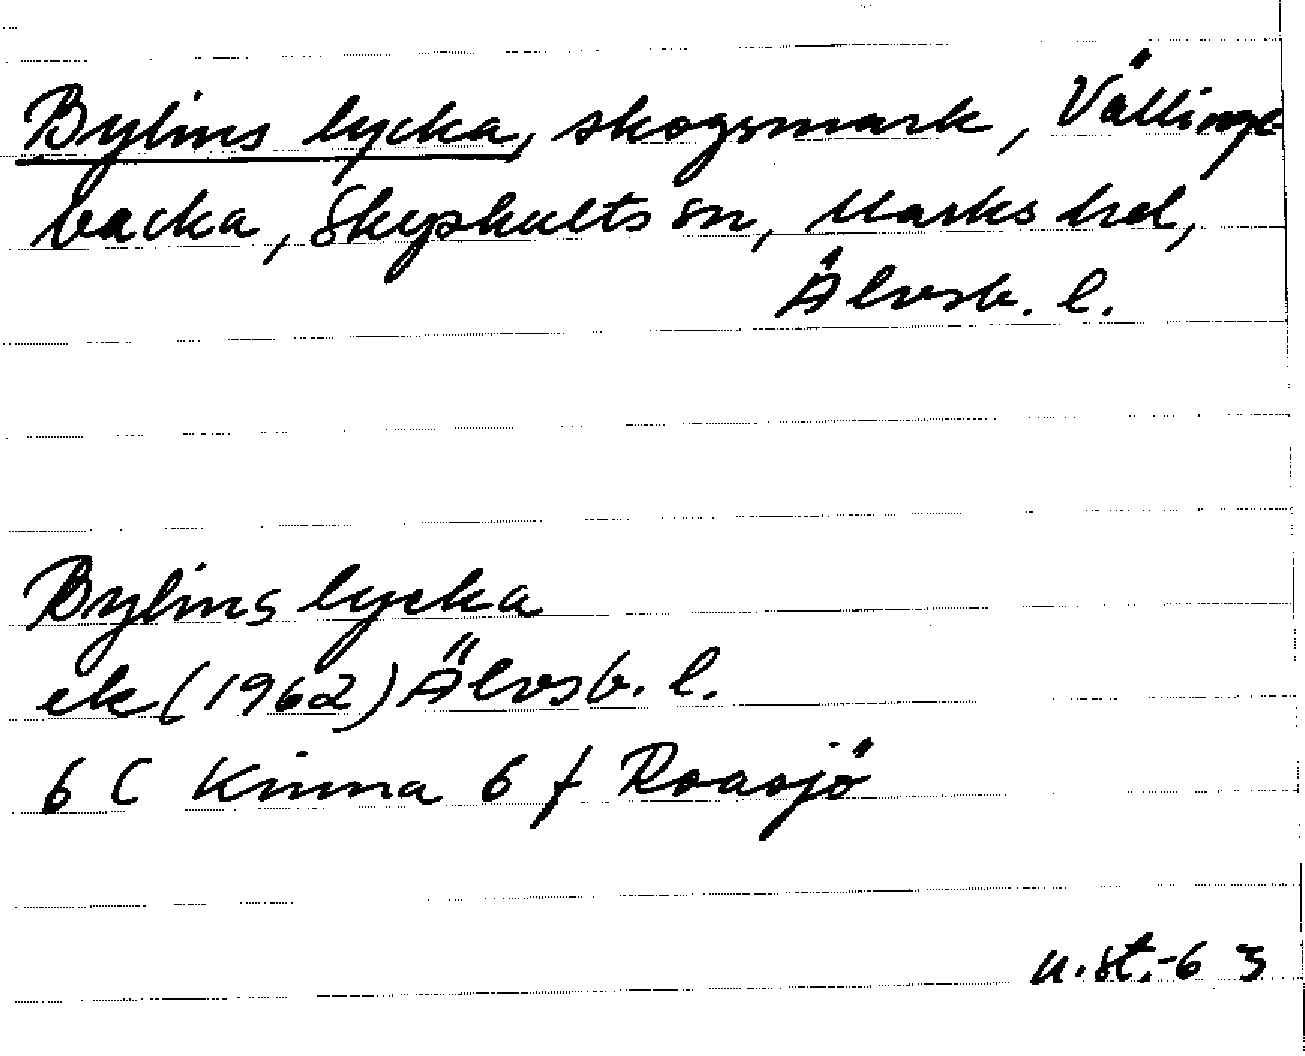 Bylins lycka, skogsmark, Vällinge
backa, Skephults sn, Marks hd,
Älvsb. l.
Bylins lycka
ek (1962) Älvsb. l.
6 C Kinna 6 f Roasjö
u.st.-63